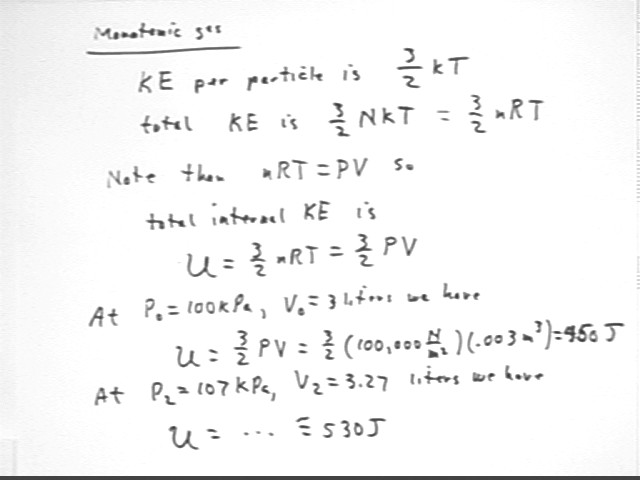 Monatomic gas
KE per particle is 3/2 kT
total KE is 3/2 NkT = 3/2 nRT
Note then nRT = PV so
total internal KE is
U = 3/2 nRT = 3/2 PV
At P₀ = 100kPa, V₀ = 3 liters we have
U = 3/2 PV = 3/2 (100,000 N/m²)(.003 m³) = 450 J
At P₂ = 107 kPa, V₂ = 3.27 liters we have
U = ... = 530J